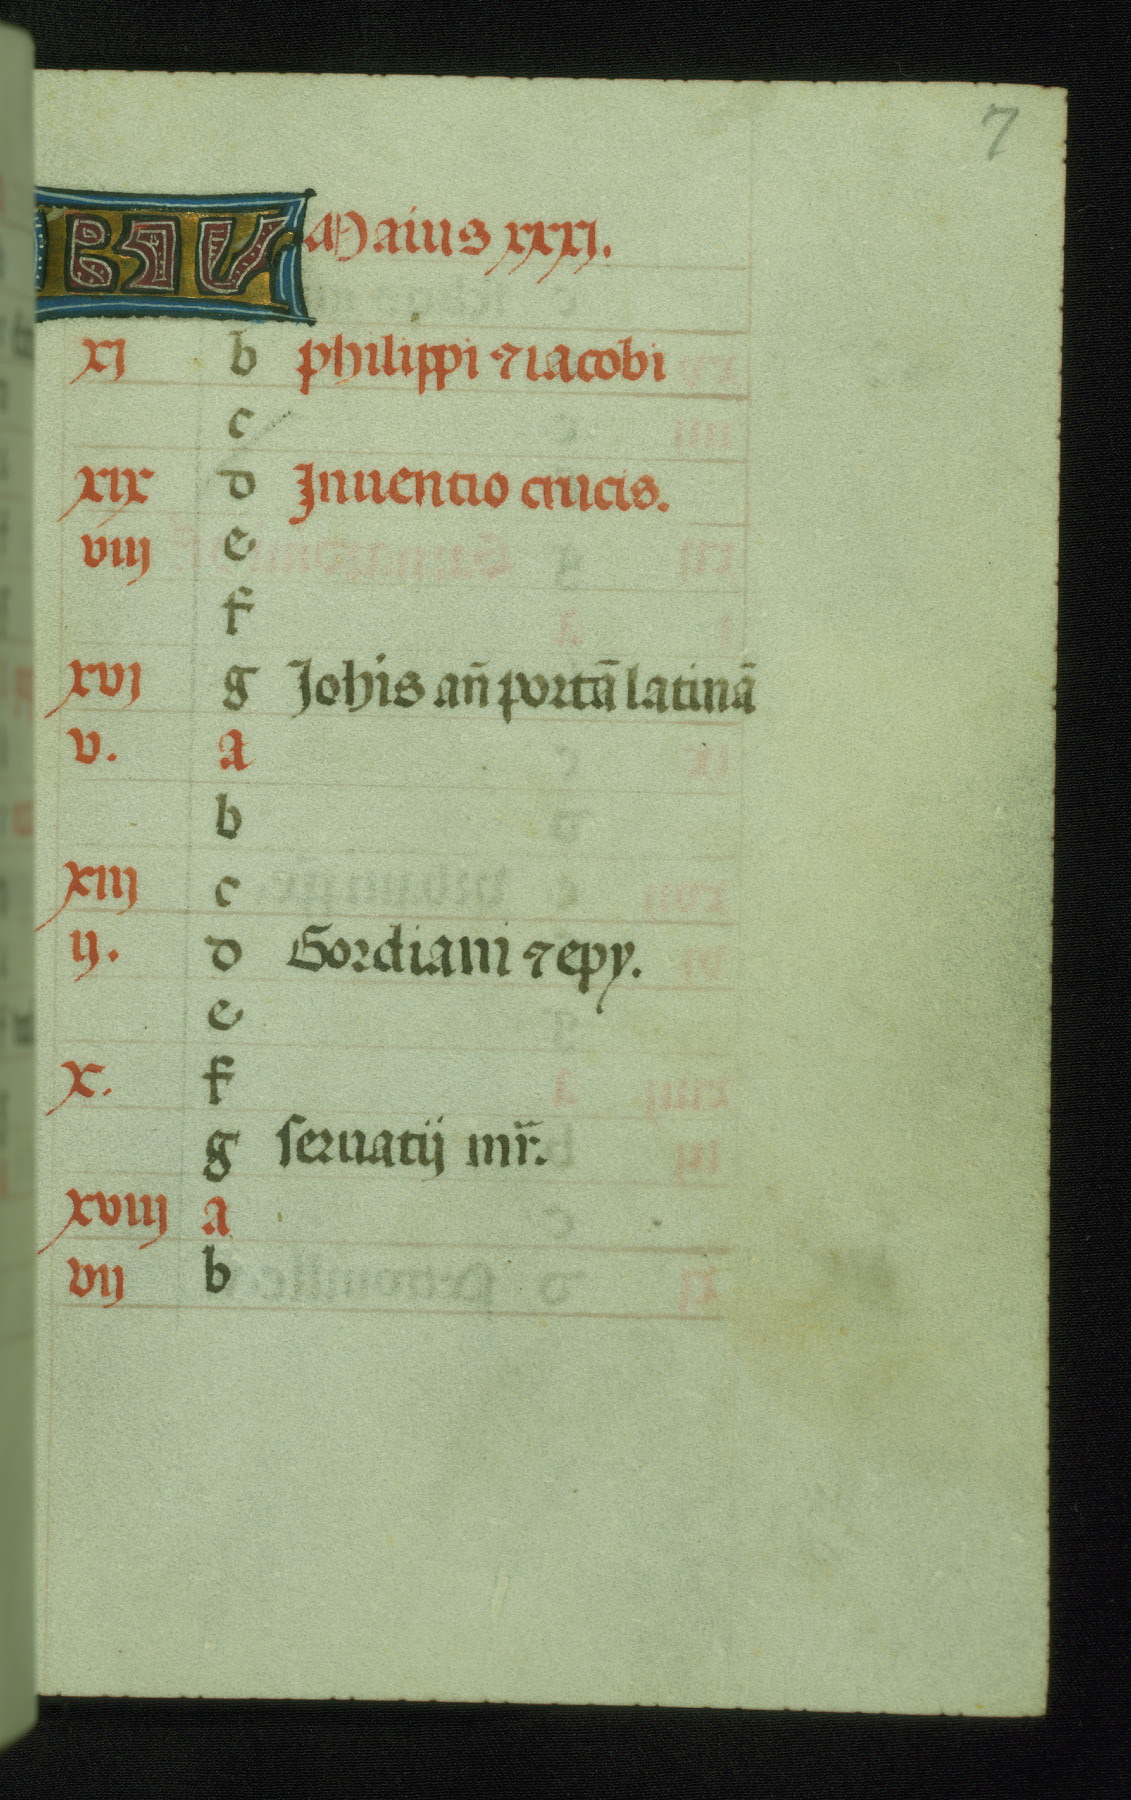 7
Maius xxxi.
xi b philippi ⁊ iacobi
c
xix d Inuentio crucis.
viij e
f
xvj g Joh'is an̄ portā latinā
v. a
b
xiij c
ij. d Gordiani ⁊ epy.
e
x. f
g seruatij mr̄.
xviij a
vij b